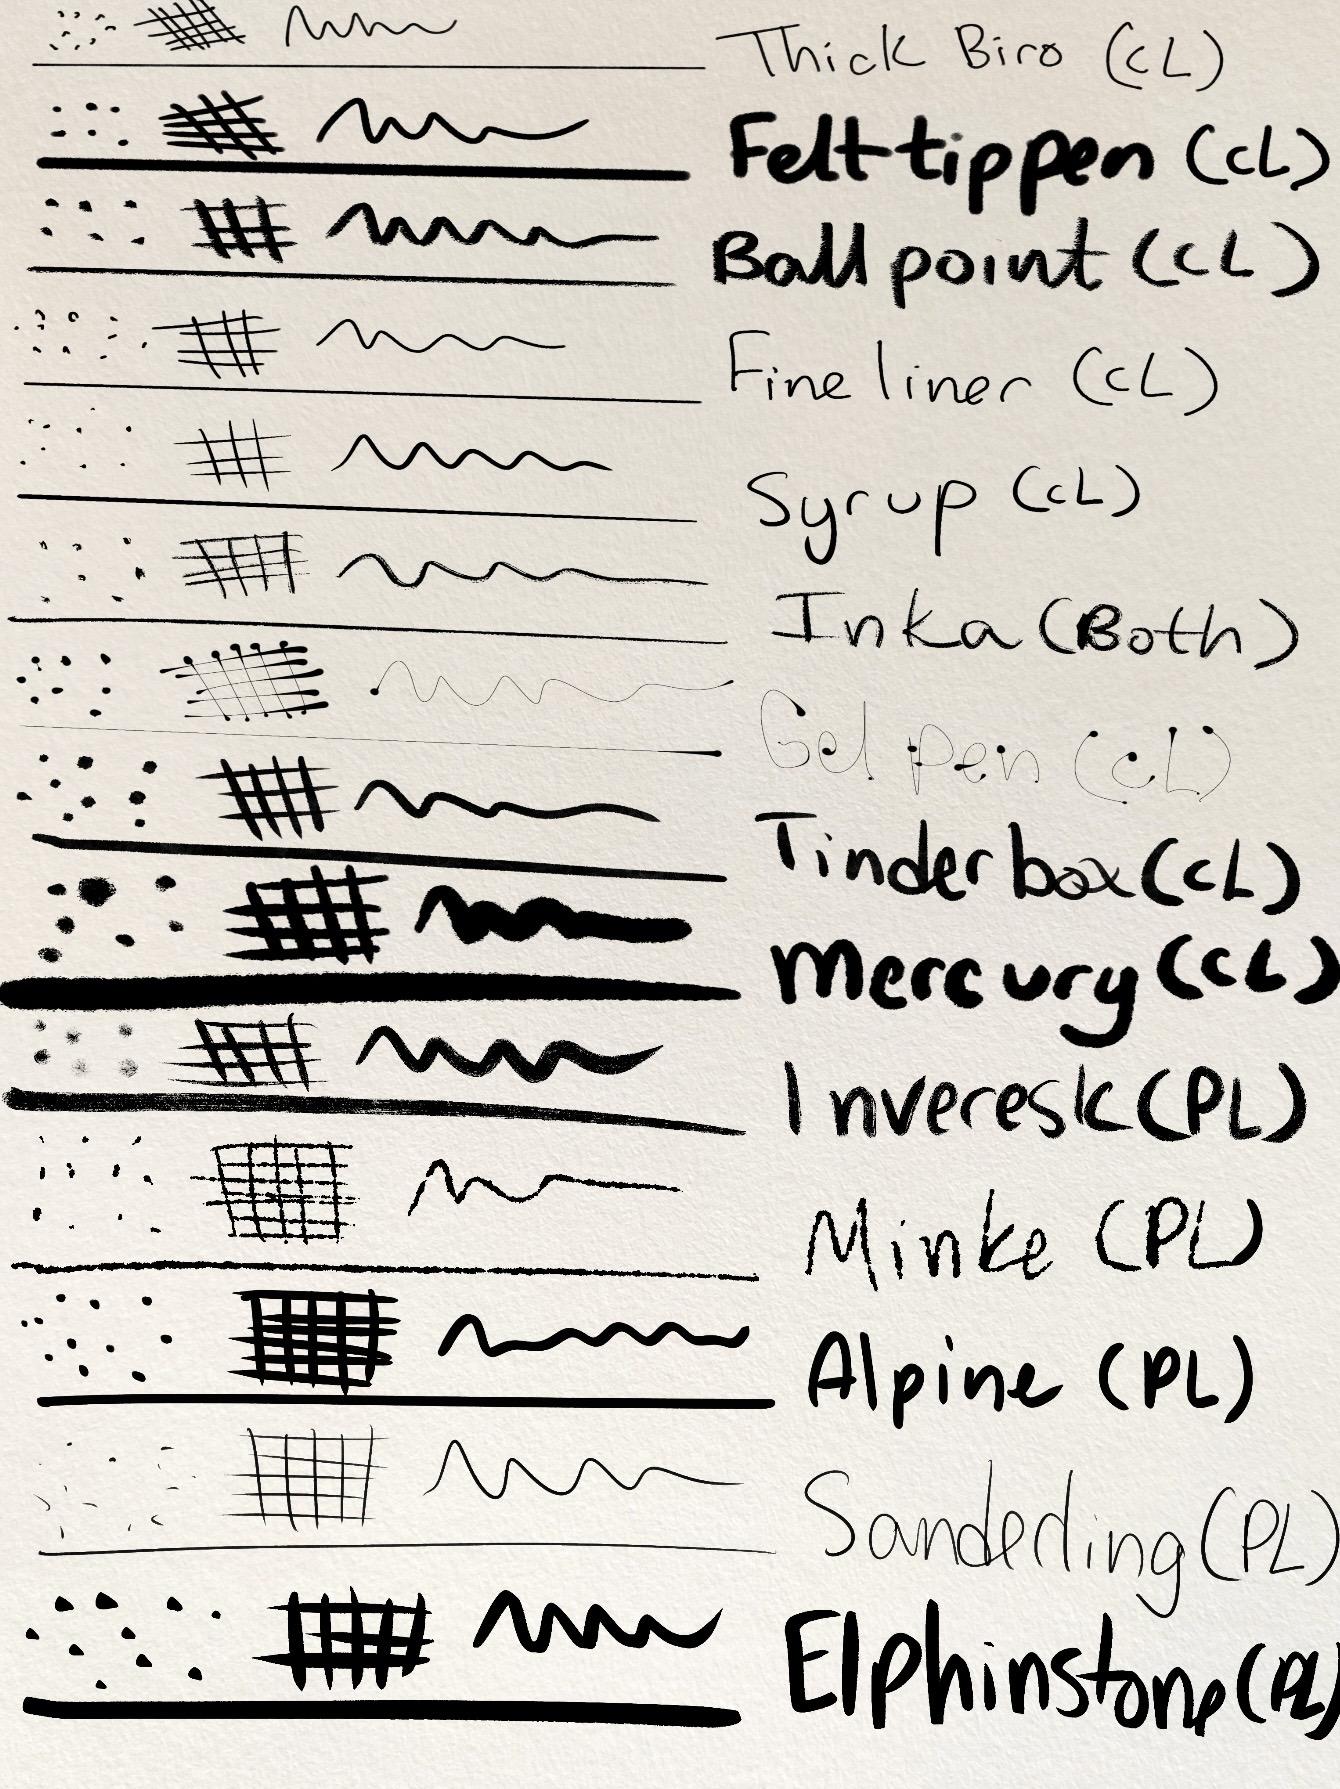 Thick Biro (CL)
Felt tip pen (CL)
Ball point (CL)
Fine liner (CL)
Syrup (CL)
Inka (Both)
Gel pen (CL)
Tinder box (CL)
Mercury (CL)
Inveresk (PL)
Minke (PL)
Alpine (PL)
Sanderling (PL)
Elphinstone (PL)